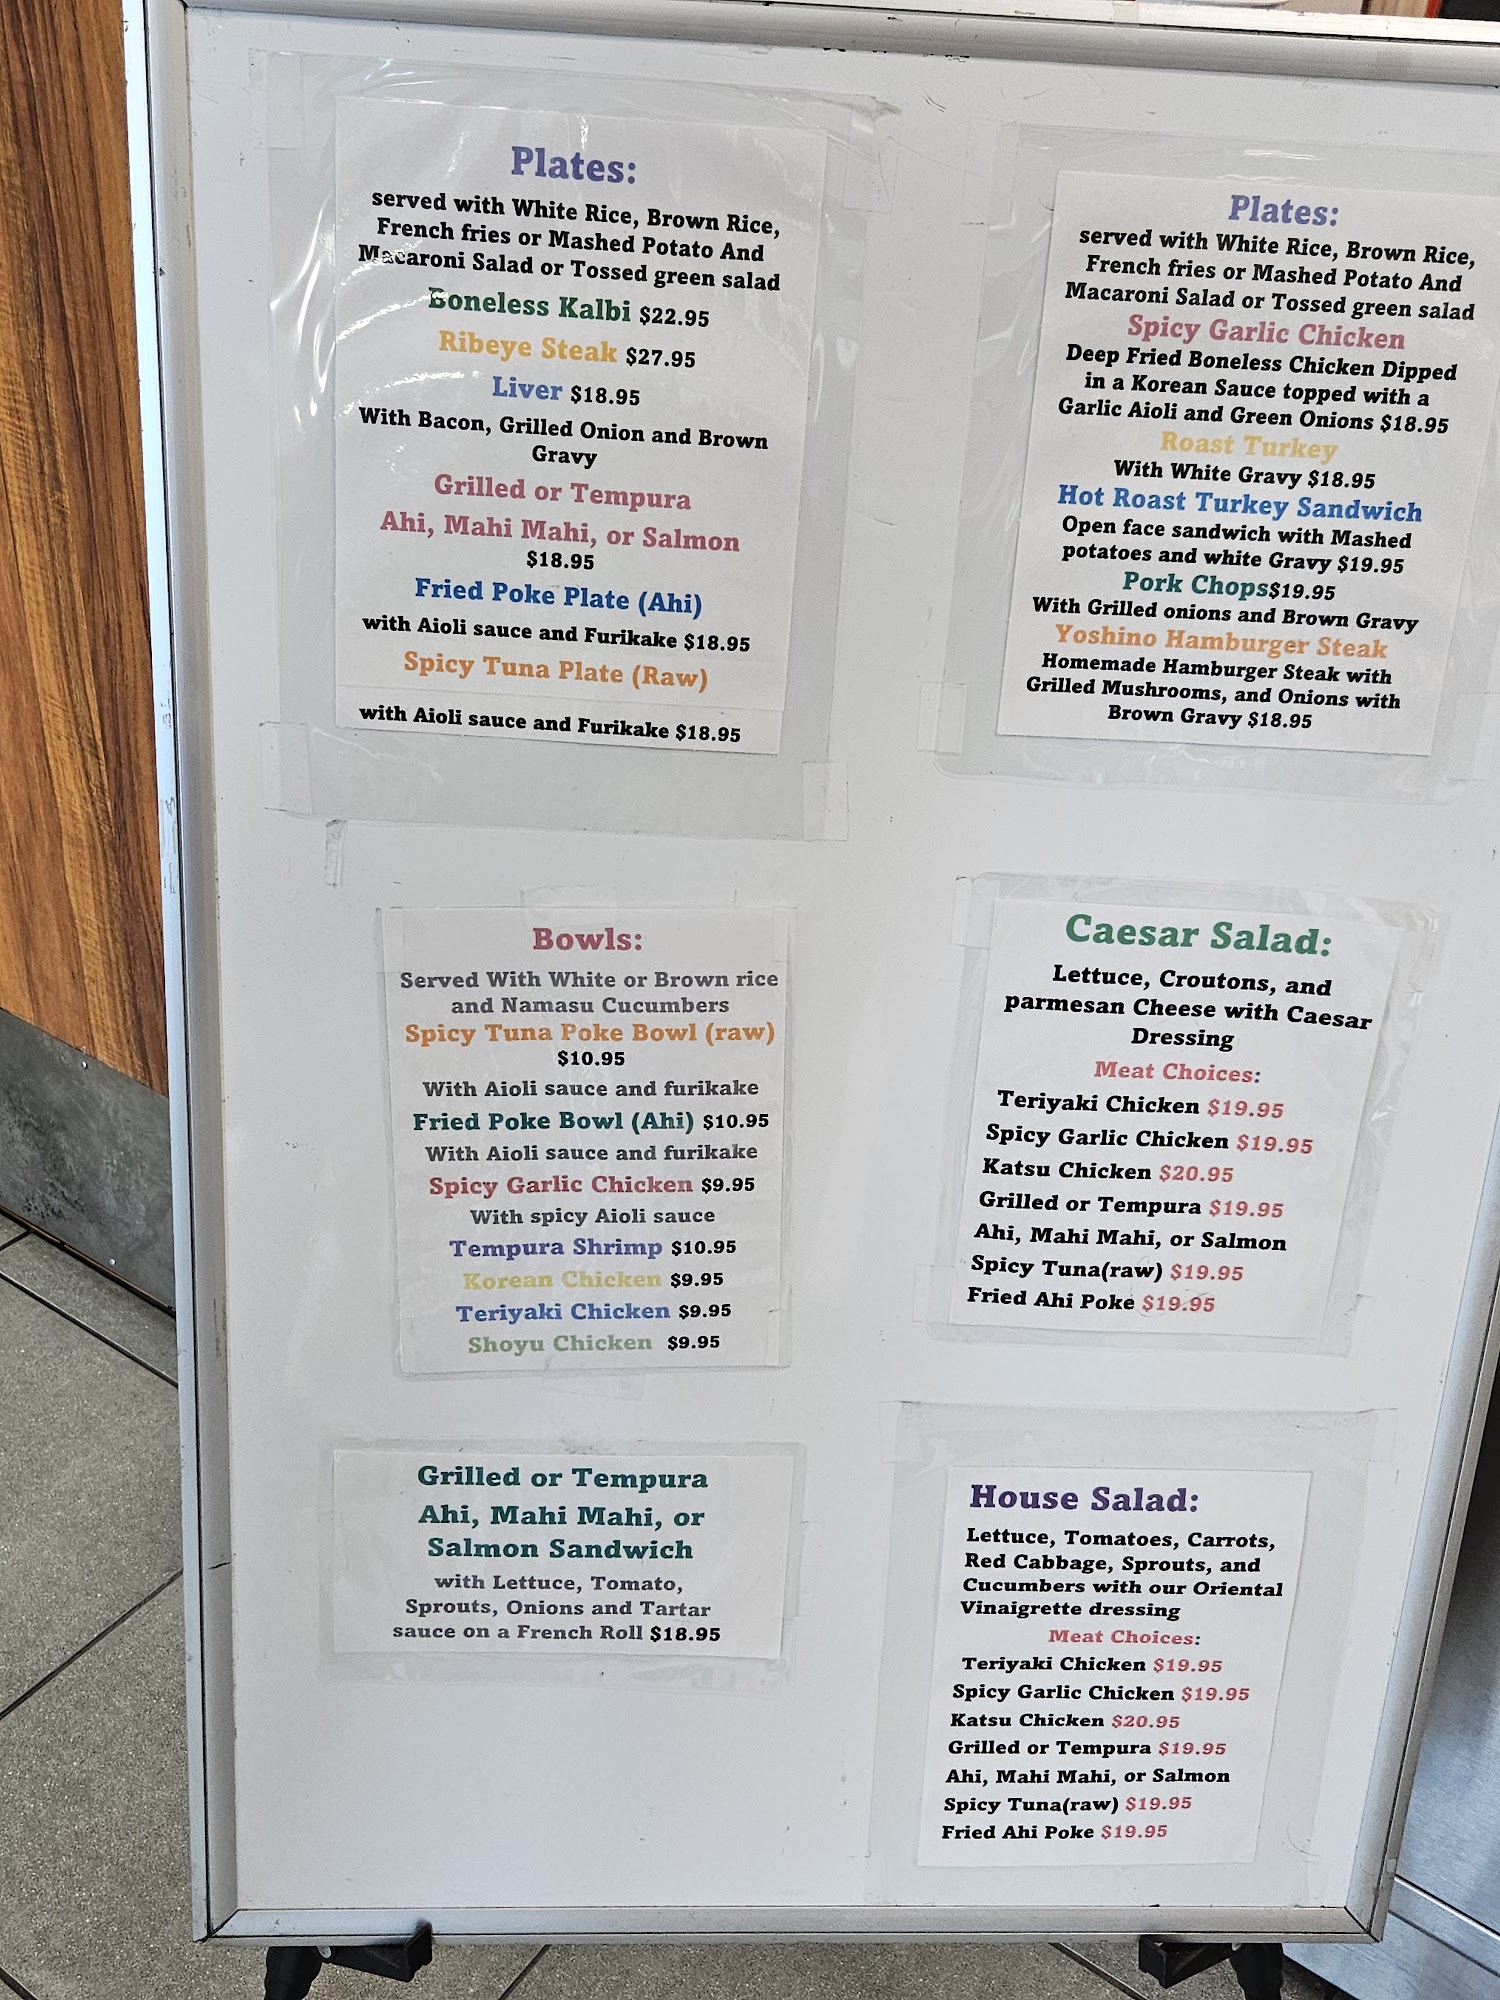 Plates:
served with White Rice, Brown Rice,
French fries or Mashed Potato And
Macaroni Salad or Tossed green salad
Boneless Kalbi $22.95
Ribeye Steak $27.95
Liver $18.95
With Bacon, Grilled Onion and Brown
Gravy
Grilled or Tempura
Ahi, Mahi Mahi, or Salmon
$18.95
Fried Poke Plate (Ahi)
with Aioli sauce and Furikake $18.95
Spicy Tuna Plate (Raw)
with Aioli sauce and Furikake $18.95
Plates:
served with White Rice, Brown Rice,
French fries or Mashed Potato And
Macaroni Salad or Tossed green salad
Spicy Garlic Chicken
Deep Fried Boneless Chicken Dipped
in a Korean Sauce topped with a
Garlic Aioli and Green Onions $18.95
Roast Turkey
With White Gravy $18.95
Hot Roast Turkey Sandwich
Open face sandwich with Mashed
potatoes and white Gravy $19.95
Pork Chops$19.95
With Grilled onions and Brown Gravy
Yoshino Hamburger Steak
Homemade Hamburger Steak with
Grilled Mushrooms, and Onions with
Brown Gravy $18.95
Bowls:
Served With White or Brown rice
and Namasu Cucumbers
Spicy Tuna Poke Bowl (raw)
$10.95
With Aioli sauce and furikake
Fried Poke Bowl (Ahi) $10.95
With Aioli sauce and furikake
Spicy Garlic Chicken $9.95
With spicy Aioli sauce
Tempura Shrimp $10.95
Korean Chicken $9.95
Teriyaki Chicken $9.95
Shoyu Chicken $9.95
Caesar Salad:
Lettuce, Croutons, and
parmesan Cheese with Caesar
Dressing
Meat Choices:
Teriyaki Chicken $19.95
Spicy Garlic Chicken $19.95
Katsu Chicken $20.95
Grilled or Tempura $19.95
Ahi, Mahi Mahi, or Salmon
Spicy Tuna(raw) $19.95
Fried Ahi Poke $19.95
Grilled or Tempura
Ahi, Mahi Mahi, or
Salmon Sandwich
with Lettuce, Tomato,
Sprouts, Onions and Tartar
sauce on a French Roll $18.95
House Salad:
Lettuce, Tomatoes, Carrots,
Red Cabbage, Sprouts, and
Cucumbers with our Oriental
Vinaigrette dressing
Meat Choices:
Teriyaki Chicken $19.95
Spicy Garlic Chicken $19.95
Katsu Chicken $20.95
Grilled or Tempura $19.95
Ahi, Mahi Mahi, or Salmon
Spicy Tuna(raw) $19.95
Fried Ahi Poke $19.95